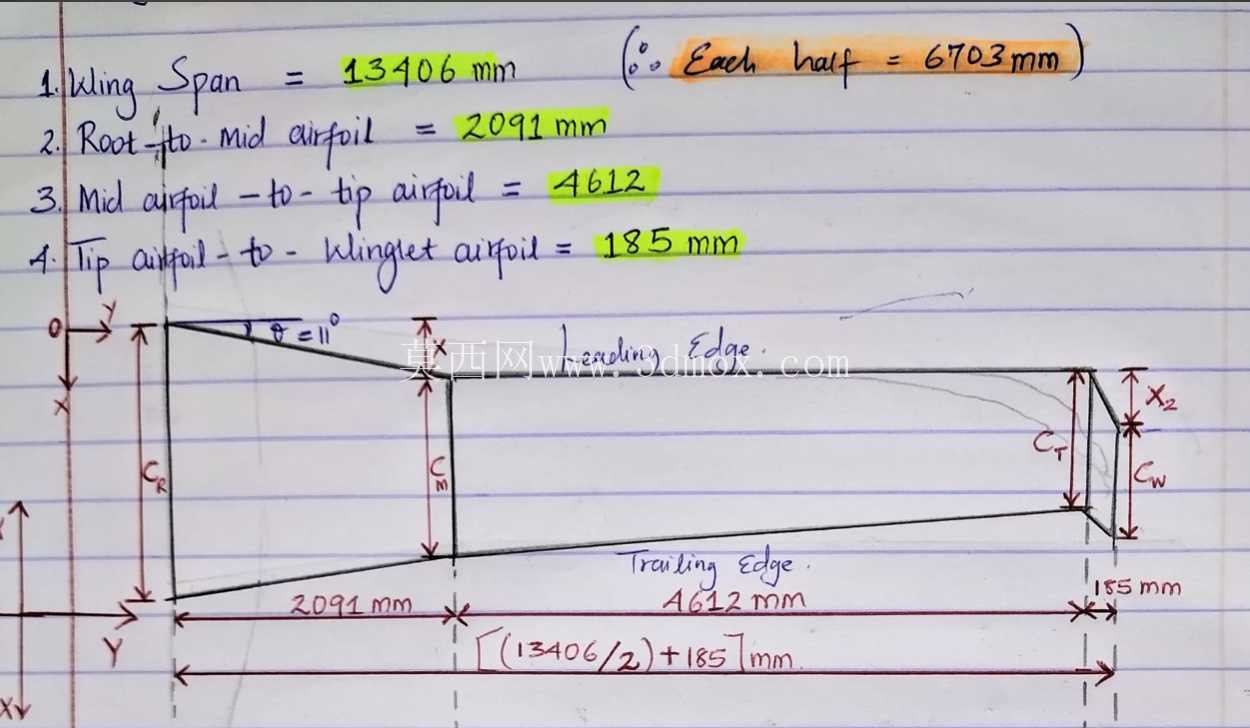 1. Wing Span = 13406 mm (∵ Each half = 6703 mm)
2. Root-to-Mid airfoil = 2091 mm
3. Mid airfoil-to-tip airfoil = 4612
4. Tip airfoil-to-Winglet airfoil = 185 mm
O Y
X
θ = 11°
X
Leading Edge.
莫西网www.3dmox.com
X2
CR
CM
CT
CW
Trailing Edge.
2091 mm
4612 mm
185 mm
Y
[(13406/2)+185]mm
X